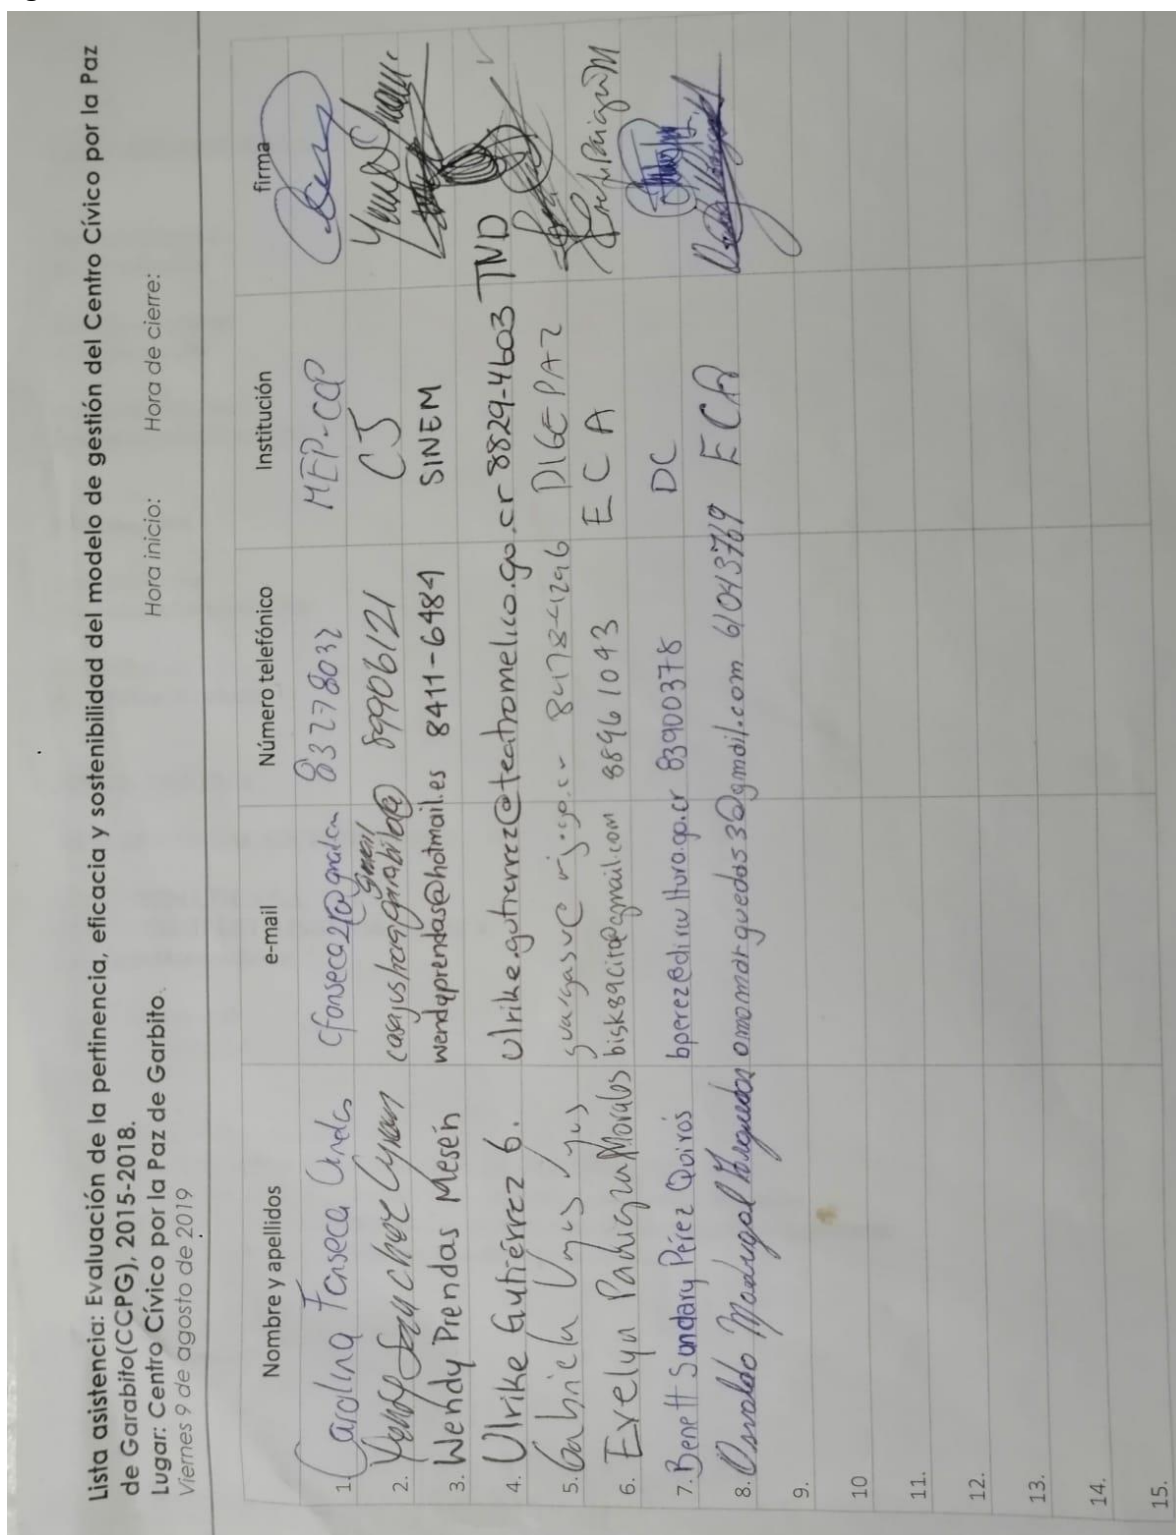 Lista asistencia: Evaluación de la pertinencia, eficacia y sostenibilidad del modelo de gestión del Centro Cívico por la Paz
de Garabito(CCPG), 2015-2018.
Lugar: Centro Cívico por la Paz de Garbito.
Viernes 9 de agosto de 2019 Hora inicio: Hora de cierre:
Nombre y apellidos e-mail Número telefónico Institución firma
1. Carolina Fonseca 83278032 MEP-CCP
2. Sanchez 89906121 CJ
3. Wendy Prendas Mesén wendyprendas@hotmail.es 8411-6484 SINEM
4. Ulrike Gutiérrez G. ulrike.gutierrez@teatromelico.go.cr 8829-4603 TND
5. Gabriela 8478-4296 DIGEPAZ
6. Evelyn Paniagua Morales bisk89cito@gmail.com 88961043 ECA
7. Benett Sundary Pérez Quirós bperez@dircultura.go.cr 83900378 DC
8. Osvaldo Madrigal 61043769 ECA
9.
10
11.
12.
13.
14.
15.